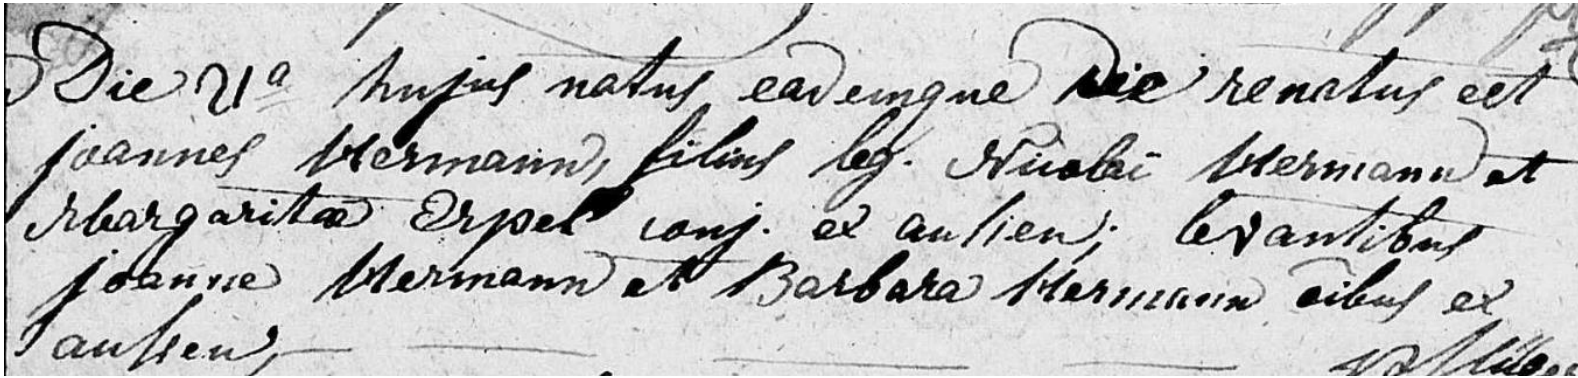 Die 21a hujus natus eademque die renatus est
joannes Hermann, filius leg. Nicolai Hermann et
Margaritæ Erpel conj. ex aussen; levantibus
joanne Hermann et Barbara Hermann oibus ex
aussen,